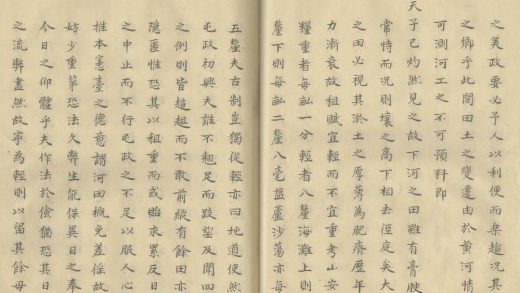 之美政要必予人以利便而樂趨況其
之鄉乎此間田土之變遷由於黃河情
可測河工之不可預料即
天子已灼然見之故下河之田雖有膏腴
常恃而況則壤之高下相去徑庭矣大
之田必視其淤土之厚薄為肥瘠歷年
力漸衰故租賦宜輕而不宜重考山安
糧重者每畝一分輕者八釐海灘上則
釐下則每畝二釐八毫葢蘆沙蕩亦每
五釐夫古制豈獨從輕亦曰地道使然
屯政初興夫誰不翹足而跂望及聞四
之例則皆趑趄而不敢前縱有餘田亦
隱匿惟恐其以租重而或貽累反日
之中止而不行屯政之不足以服人心
推本憲臺之德意謂河田概免差徭故
妨少重第恐法久弊生能保異日之奉
今日之仰體乎夫作法於儉猶恐其日
之流弊盡然故寧為輕則以留其餘毋